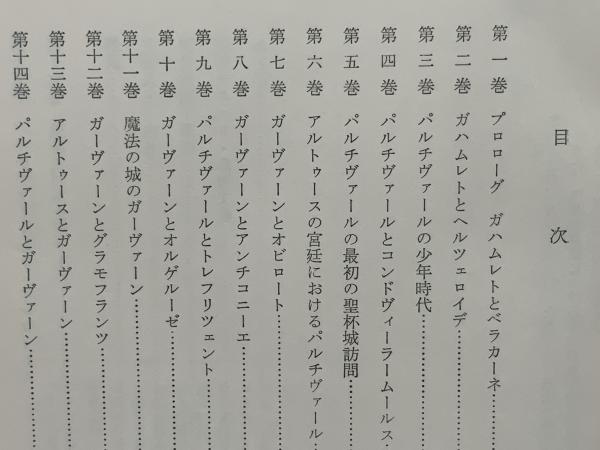 目次
第一巻 プロローグ ガハムレトとベラカーネ…………
第二巻 ガハムレトとヘルツェロイデ…………
第三巻 パルチヴァールの少年時代…………
第四巻 パルチヴァールとコンドヴィーラームールス…
第五巻 パルチヴァールの最初の聖杯城訪問…………
第六巻 アルトゥースの宮廷におけるパルチヴァール…
第七巻 ガーヴァーンとオビロート…………
第八巻 ガーヴァーンとアンチコニーエ…………
第九巻 パルチヴァールとトレフリツェント…………
第十巻 ガーヴァーンとオルゲルーゼ…………
第十一巻 魔法の城のガーヴァーン…………
第十二巻 ガーヴァーンとグラモフランツ…………
第十三巻 アルトゥースとガーヴァーン…………
第十四巻 パルチヴァールとガーヴァーン…………